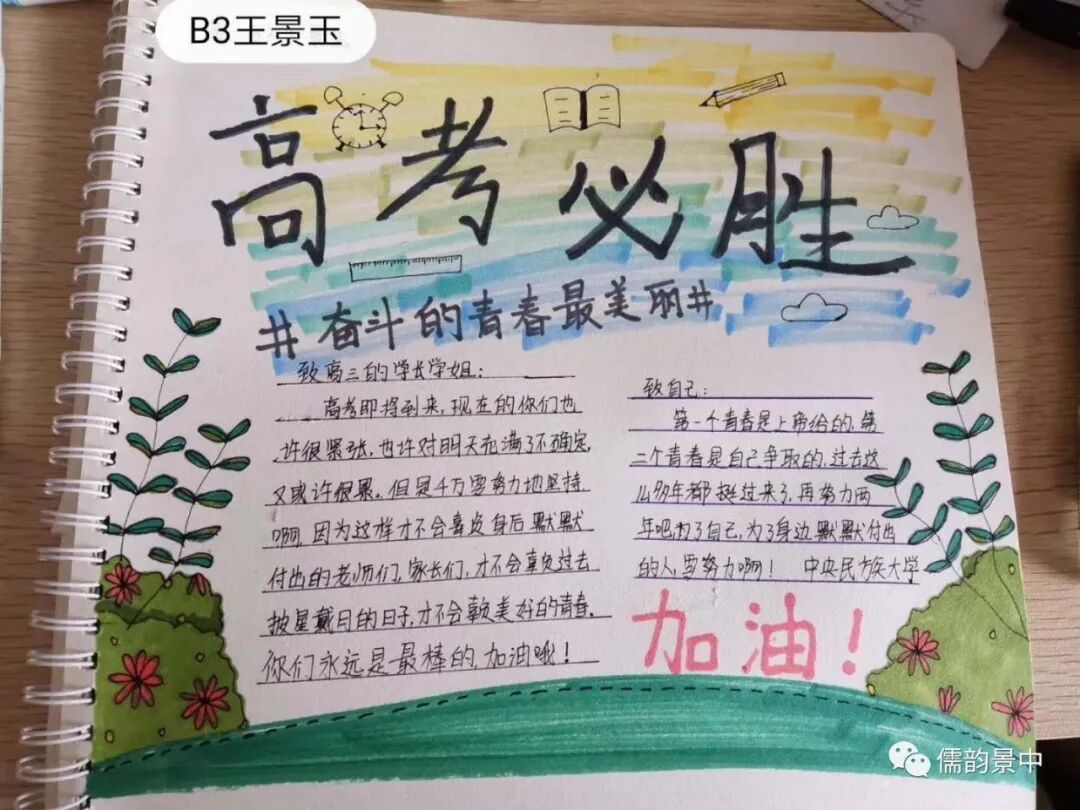 B3王景玉
高考必胜
#奋斗的青春最美丽#
致高三的学长学姐：
高考即将到来，现在的你们也
许很紧张，也许对明天充满了不确定，
又或许很累。但是千万要努力地坚持
啊，因为这样才不会辜负身后默默
付出的老师们，家长们，才不会辜负过去
披星戴月的日子，才不会辜负美好的青春。
你们永远是最棒的，加油哦！
致自己：
第一个青春是上帝给的，第
二个青春是自己争取的，过去这
么多年都挺过来了，再努力两
年吧，为了自己，为了身边默默付出
的人，要努力啊！ 中央民族大学
加油！
儒韵景中